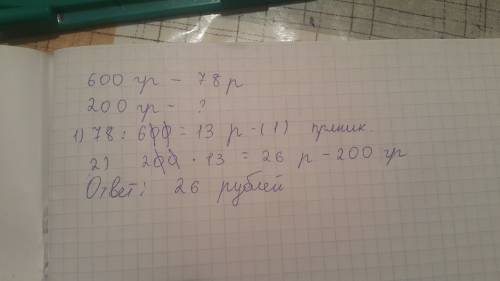 600 гр – 78 р
200 гр – ?
1) 78 : 600 = 13 р – (1) пряник.
2) 200 · 13 = 26 р – 200 гр
Ответ: 26 рублей